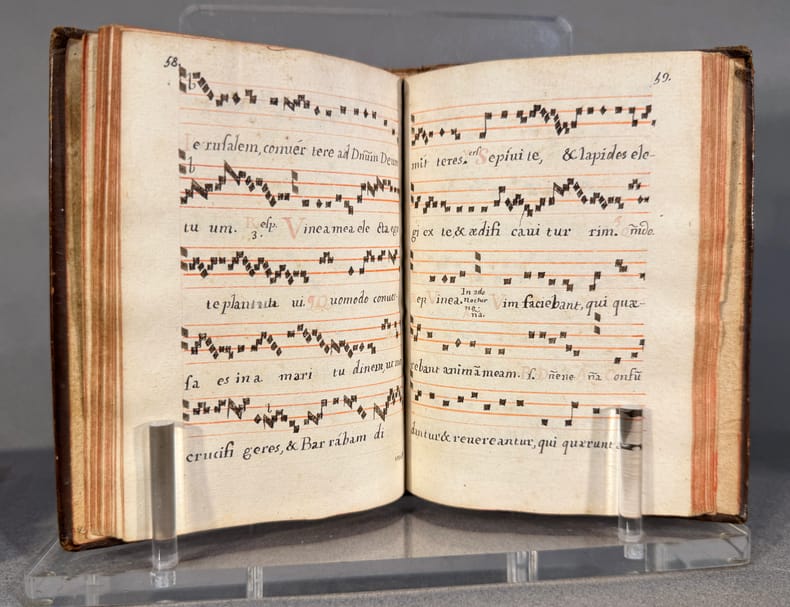 58.
Jerusalem, convér tere ad Dñum Deum
tu um. Resp. 3. Vinea mea ele cta ego
te plantavi. Quomodo conver-
sa es in a mari tu dinem, ut me
crucifi geres, & Bar rábam di
59.
mit teres. Sepivi te, & lapides ele-
gi ex te & ædifi cávi tur rim.
Vinea. In 2do Noctur no. Vim faciebant, qui quæ-
rebant animã meam.
dintur & revereantur, qui quærunt